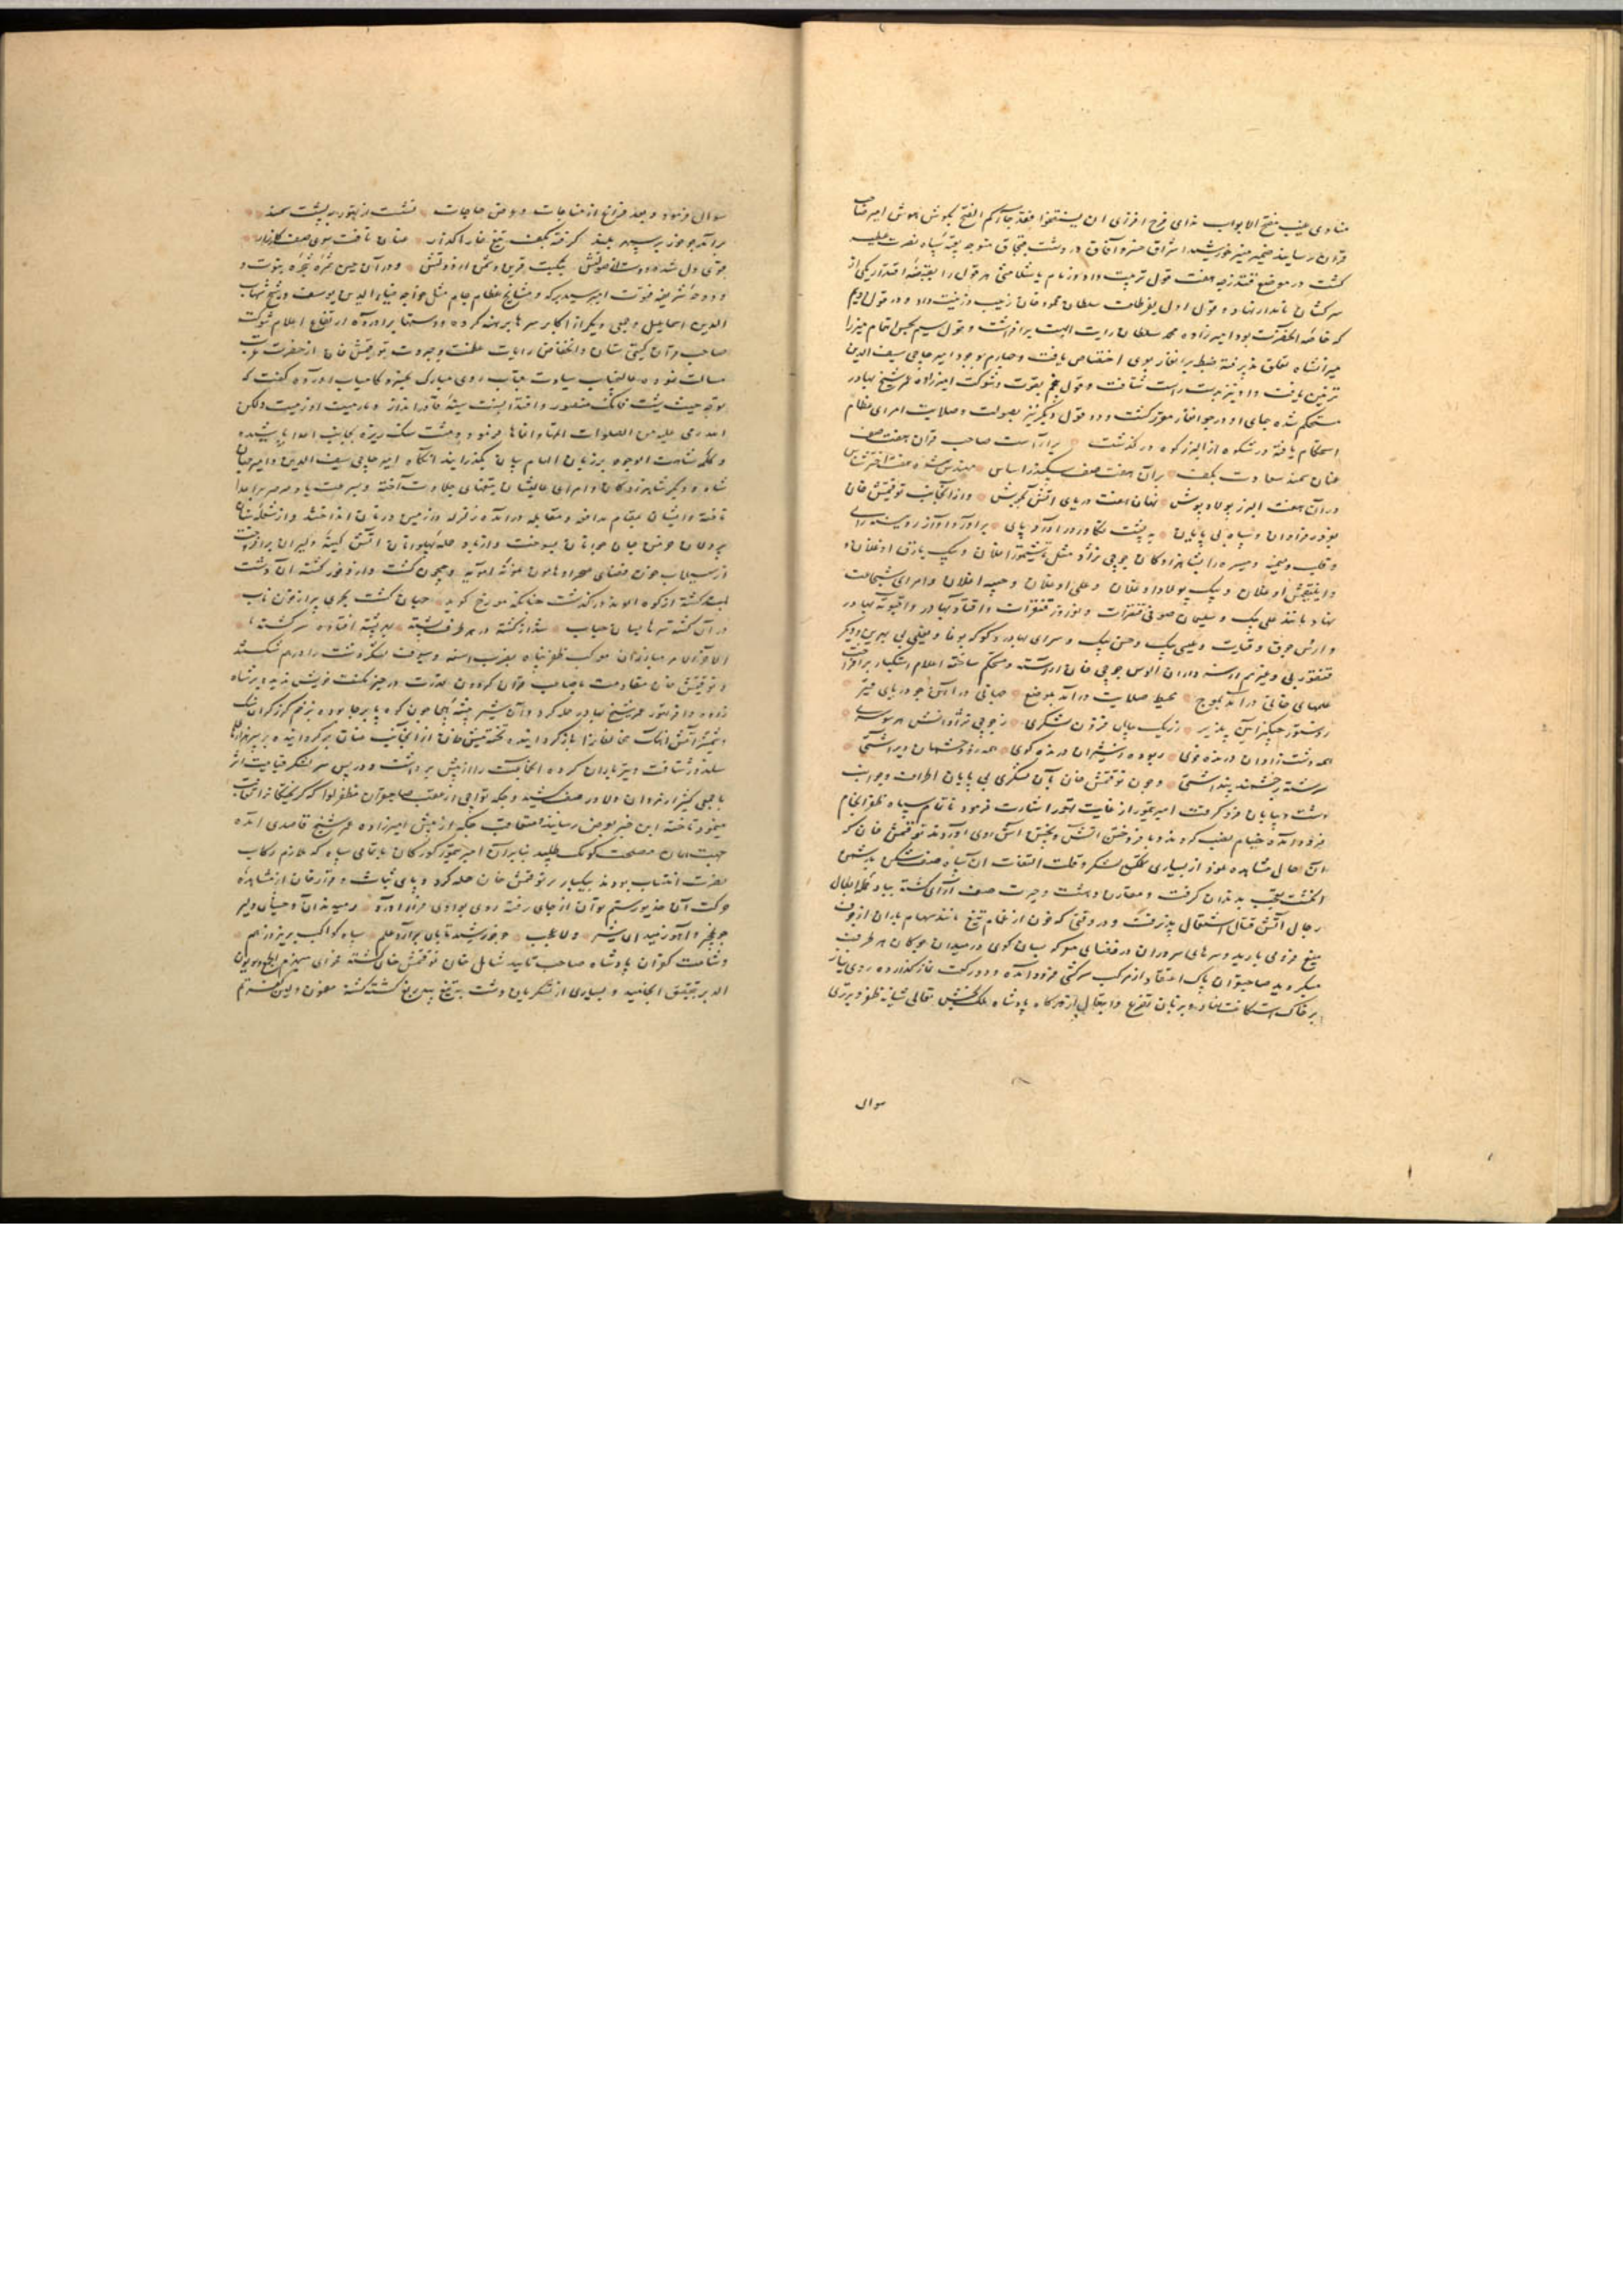 منادی غیب مفتح الابواب ندای فرح افزای ان یستفتحوا فقد جاءکم الفتح بگوش هوش امیر صاحب
قران رسانید ضمیر منیر خورشید اشراق خسرو آفاق در دشت قبچاق متوجه تعبیه سپاه نصرت
گشت در موضع قندزچه هفت قول ترتیب داد و زمام هر قول را بقبضه اقتدار یکی از
سرکشان نامدار نهاد و قول اول بفر طلعت سلطان محمود خان زیب و زینت داد و در قول دویم
که خاصه آنحضرت بود امیرزاده محمد سلطان رایت ابهت برافراشت و قول سیم بحسن اهتمام میرزا
میرانشاه تعلق پذیرفته ضبط برانغار بوی اختصاص یافت و چهارم بوجود امیر حاجی سیف الدین
تزیین یافت و او نیز بدست راست شتافت و قول پنجم بقوت و شوکت امیرزاده عمر شیخ بهادر
مستحکم شده جای او در جوانغار مقرر گشت و دو قول دیگر نیز بصولت و صلابت امرای عظام
استحکام یافته در شکوه از البرز کوه درگذشت برآراست صاحب قران هفت صف
عنان سمند سعادت بکف بر آن هفت صف سکندر اساس
در آن هفت البرز پولاد پوش نهان هفت دریای آتش بجوش و از آنجانب توقتمش خان
بغدر فراوان و سپاه بی پایان به پشت تکاور درآورد پای برآورد آواز رویینه نای
و قلب و میمنه و میسره را بشاهزادگان جوچی نژاد مثل تاشتیمور اغلان و بیک یارق اوغلان و
و ایلیغمش اوغلان و بیک پولاد اوغلان و علی اوغلان و جنته اغلان و امرای شجاعت
نهاد مانند علی بیک و سلیمان صوفی قنقرات و نوروز قنقرات و اقتاو بهادر و
و ارس جوق و قیات و عیسی بیک و حسن بیک و سرای بهادر و کوکه بوغا و یغلی بی بهرین و دیگر
قنقور بی و غیرهم از سرداران الوس جوچی خان آراسته و مستحکم ساخته اعلام استکبار برافراخت
علمهای خانی درآمد بموج محیط صلابت درآمد باوج
ز دستور چنگیز آیین پذیر ز ریگ بیابان فزون لشکری ز جوچی نژادانش هر سو سری
همه دشت زادان درنده خوی ربوده ز شیران درنده گوی
و چون توقتمش خان با آن لشکری بی پایان اطراف و جوانب
دشت و بیابان فرو گرفت امیر تیمور از غایت تهور اشارت فرمود تا تمام سپاه ظفر انجام
فرود آمده خیام نصب کردند و بافروختن آتش و پختن آش روی آوردند توقتمش خان که
این حال مشاهده نمود از بسیاری تمکن لشکر و قلت التفات آن سپاه صف شکن بدشمن
انگشت تعجب بدندان گرفت و مقارن دهشت و حیرت صف آرای گشته بباد حمله ابطال
رجال آتش قتال اشتعال پذیرفت و در وقتی که خون از غمام تیغ مانند سهام باران از جوف
میغ فرو می بارید و سرهای سروران در فضای معرکه بسان گوی در میدان چوگان هر طرف
میگردید صاحبقران پاک اعتقاد از مرکب سرکش فرود آمده و دو رکعت نماز گذارده روی نیاز
بر خاک استکانت نهاد و بر زبان تضرع و ابتهال از درگاه پادشاه ملک بخش تعالی شانه ظفر و برتری
سوال
سوال فرمود و بعد فراغ از مناجات و عرض حاجات نشست از تهور بپشت سمند
برآمد چو خور بر سپهر بلند گرفته بکف تیغ خارا گذار عنان تافت سوی صف کارزار
قوی دل شده دوست از صولتش شکست قرین دشمن از دولتش و در آن حین ثمره شجره نبوت و
و دوحه شریفه فتوت امیر سید برکه و مشایخ عظام جام مثل خواجه ضیاء الدین یوسف و شیخ شهاب
الدین اسماعیل و جمعی دیگر از اکابر سرها برهنه کرده و دستها برآورده ارتفاع اعلام شوکت
صاحب قران گیتی ستان و انخفاض رایات عظمت و جبروت توقتمش خان از حضرت عزت
مسالت نموده عالیجناب سیادت مآب روی مبارک بخسرو کامیاب آورده گفت که
توجه حیث شئت فانک منصور و اقتدا بسنت سنیه و ما رمیت اذ رمیت ولکن
الله رمی علیه من الصلوات اتمها فرمود و مشت سنگ ریزه بجانب اعدا پاشیده
و کلمه شاهت الوجوه بر زبان الهام بیان بگذرانید آنگاه امیر حاجی سیف الدین و امیر جهان
شاه و دیگر شاهزادگان و امرای عالیشان تیغهای جلادت آخته و بسرعت باد صرصر بر اعدا
تاخته و ایشان بمقام مدافعه و مقابله درآمده زلزله در زمین و زمان انداختند و از شعله سنان
پردلان خرمن جان جوانان بسوخت و از باد حمله پهلوانان آتش کینه دلیران برافروخت
از سیلاب خون فضای صحرا و هامون نمونه آمویه و جیحون گشت و از وفور کشته آن دشت
پشته گشته از کوه الوند درگذشت چنانکه مورخ گوید چنان گشت بحری پر از خون ناب
در آن گشته سرها بسان حباب شد از کشته در هر طرف پشته بهر پشته افتاده سرگشته
آخر الامر مبارزان موکب ظفر پناه بضرب اسنه و سیوف لشکر دشت را درهم شکستند
و توقتمش خان مقاومت با صاحب قران گردون قدرت در حیز مکنت خویش ندیده بر شاه
زاده وافر تهور عمر شیخ بهادر حمله کرد و آن شیر بیشه هیجا چون کوه پابرجا بوده بزخم گرز گران
و شمشیر آتش آهنگ مخالفانرا بازگردانیده توقتمش خان از آنجانب عنان برگردانیده بر هزاره
سلدوز شتافت و تیر باران کرده آنجماعت را از پیش برداشت و در پس سر لشکر قیامت اثر
با جمعی کثیر از مردان دلاور صف کشید و جکه تواجی از عقب صاحبقران مظفر لوا که گریختگانرا تعاقب
مینمود تاخته این خبر بعرض رسانید متعاقب جکه از پیش امیرزاده عمر شیخ قاصدی آمده
جهت همان مصلحت کومک طلبید بنابرآن امیر تیمور گورکان با تمامی سپاه که ملازم رکاب
نصرت انتساب بودند بیکبار بر توقتمش خان حمله کرد و پای ثبات و قرار خان از مشاهده
حرکت آن خدیو رستم توان از جای رفته روی بوادی فرار آورد
چو خورشید تابان برآرد علم سپاه کواکب بریزد ز هم
و شامت کفران پادشاه صاحب تایید شامل حال توقتمش خان گشته
و بسیاری از لشکریان دشت به تیغ بیدریغ کشته گشته